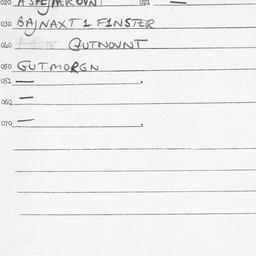 020 021 —
030 BAJNAXT 1 FINSTER
040 GUTNOVNT
050 GUTMORGN
051 —
060 —
070 —